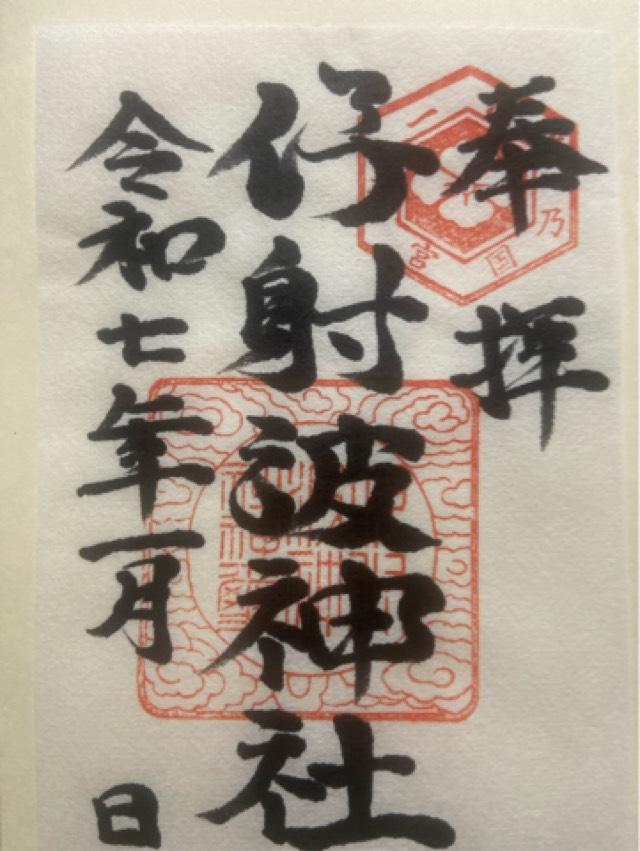 奉拝
伊射波神社
令和七年一月　日